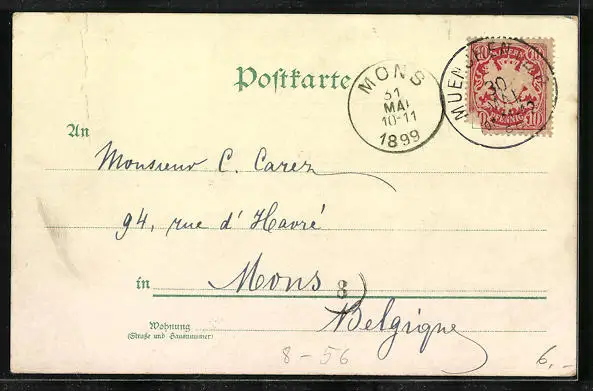 Postkarte
MONS
31
MAI
10-11
1899
MUENCHEN
30
BAYERN
10 PFENNIG 10
An
Monsieur C. Carez
94, rue d' Havré
in Mons
8
Belgique
Wohnung
(Straße und Hausnummer)
8-56
6,-